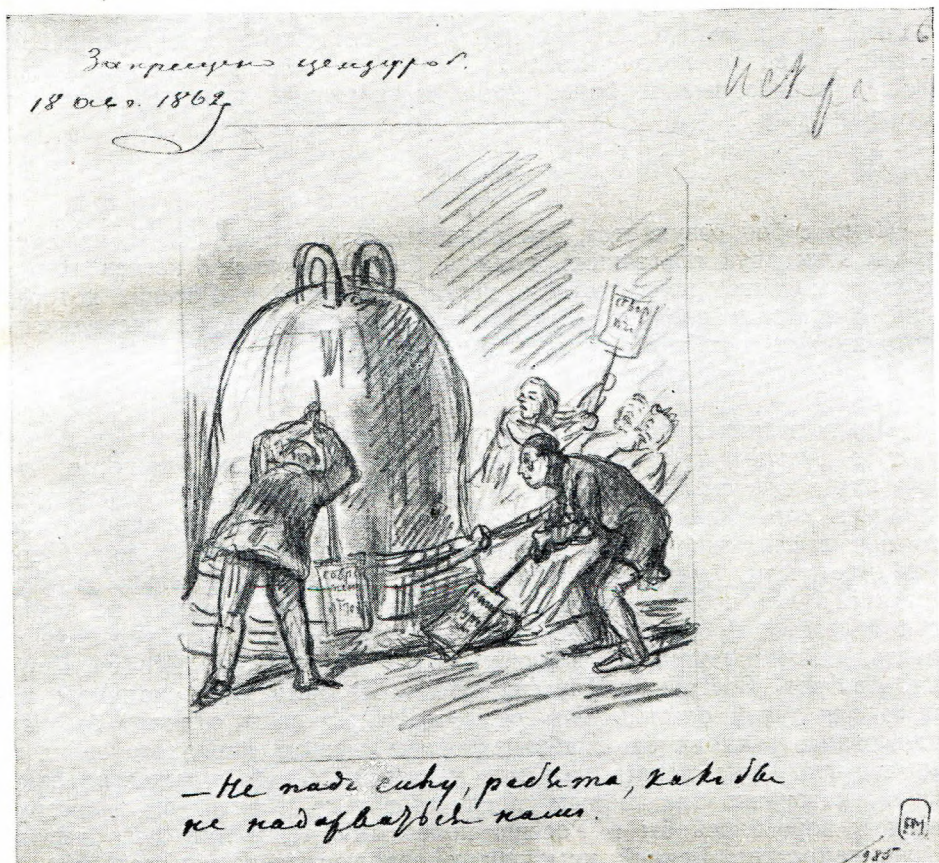 Запрещено цензурой.
18 авг. 1862
Искра
сѣвер
пч.
— Не подъ силу, ребята, какъ бы
не надорваться намъ.
985